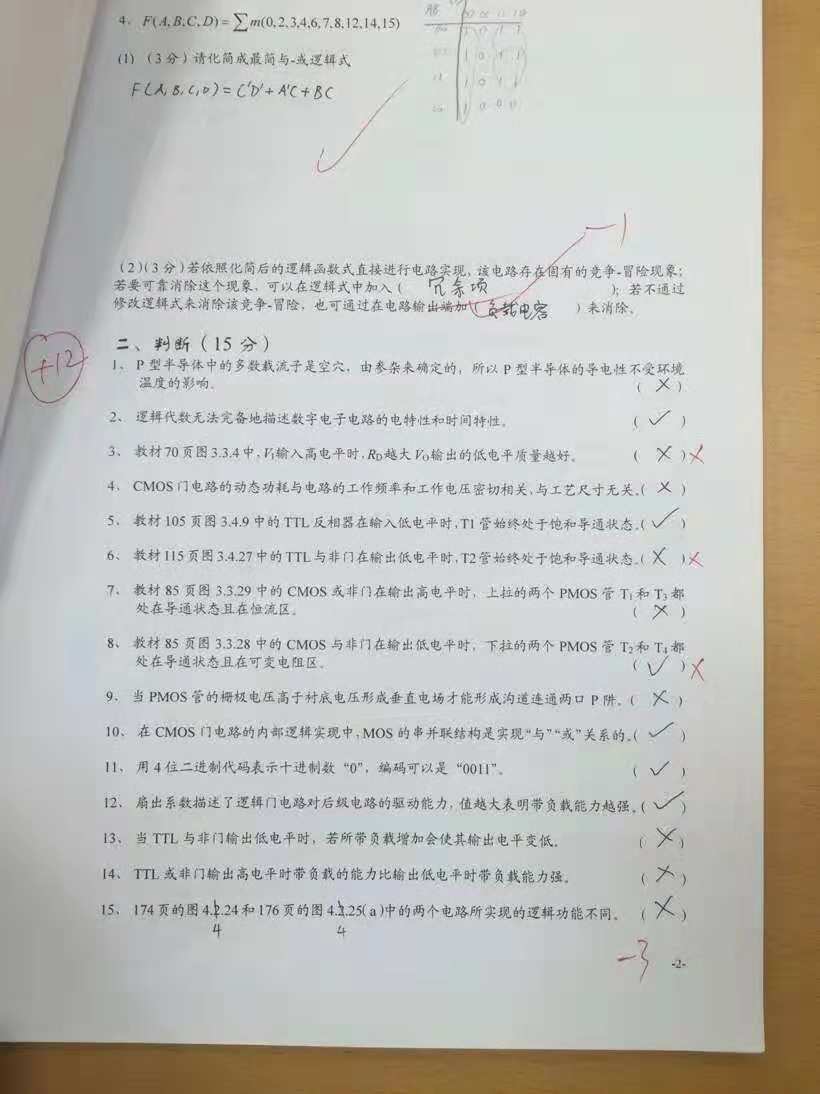 4、F(A,B,C,D)=∑m(0,2,3,4,6,7,8,12,14,15)
AB
1 0 1 1
1 0 1 1
1 0 1 1
1 0 0 0
(1) (3分)请化简成最简与-或逻辑式
F(A,B,C,D)=C'D'+A'C+BC
-1
(2)(3分)若依照化简后的逻辑函数式直接进行电路实现,该电路存在固有的竞争-冒险现象;
若要可靠消除这个现象,可以在逻辑式中加入( 冗余项 );若不通过
修改逻辑式来消除该竞争-冒险,也可通过在电路输出端加( 负载电容 )来消除。
+12
二、判断(15分)
1、P型半导体中的多数载流子是空穴,由参杂来确定的,所以P型半导体的导电性不受环境
温度的影响。 ( × )
2、逻辑代数无法完备地描述数字电子电路的电特性和时间特性。 ( ✓ )
3、教材70页图3.3.4中,VI输入高电平时,RD越大VO输出的低电平质量越好。 ( × ) ×
4、CMOS门电路的动态功耗与电路的工作频率和工作电压密切相关,与工艺尺寸无关。( × )
5、教材105页图3.4.9中的TTL反相器在输入低电平时,T1管始终处于饱和导通状态。( ✓ )
6、教材115页图3.4.27中的TTL与非门在输出低电平时,T2管始终处于饱和导通状态。( × ) ×
7、教材85页图3.3.29中的CMOS或非门在输出高电平时,上拉的两个PMOS管T1和T3都
处在导通状态且在恒流区。 ( × )
8、教材85页图3.3.28中的CMOS与非门在输出低电平时,下拉的两个PMOS管T2和T4都
处在导通状态且在可变电阻区。 ( ✓ ) ×
9、当PMOS管的栅极电压高于衬底电压形成垂直电场才能形成沟道连通两口P阱。( × )
10、在CMOS门电路的内部逻辑实现中,MOS的串并联结构是实现“与”“或”关系的。( ✓ )
11、用4位二进制代码表示十进制数“0”,编码可以是“0011”。 ( ✓ )
12、扇出系数描述了逻辑门电路对后级电路的驱动能力,值越大表明带负载能力越强。( ✓ )
13、当TTL与非门输出低电平时,若所带负载增加会使其输出电平变低。 ( × )
14、TTL或非门输出高电平时带负载的能力比输出低电平时带负载能力强。 ( × )
15、174页的图4.2.24和176页的图4.2.25(a)中的两个电路所实现的逻辑功能不同。 ( × )
4 4
-3
-2-